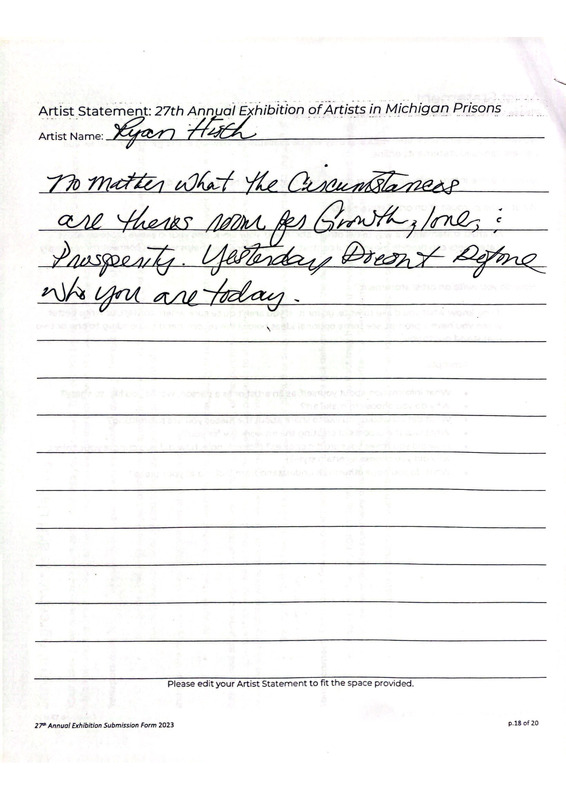 Artist Statement: 27th Annual Exhibition of Artists in Michigan Prisons
Artist Name: Ryan Huth
No matter what the Circumstances
are theres room for Growth, love, &
Prosperity. Yesterday Doesnt Define
who you are today.
Please edit your Artist Statement to fit the space provided.
27th Annual Exhibition Submission Form 2023
p.18 of 20